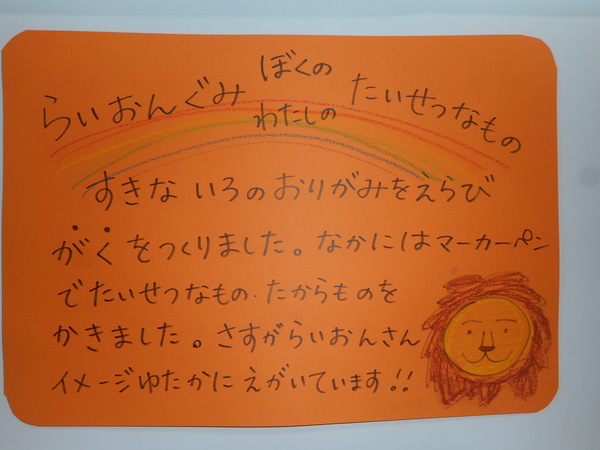 らいおんぐみ ぼくの わたしの たいせつなもの
すきな いろのおりがみをえらび
がくをつくりました。なかにはマーカーペン
でたいせつなもの・たからものを
かきました。さすがらいおんさん
イメージゆたかに えがいています!!